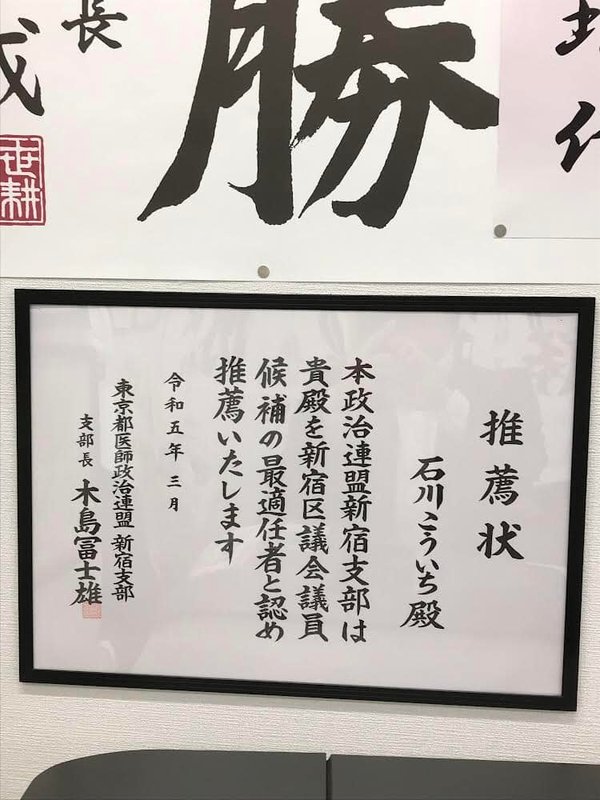 勝
長
成
推薦状
石川こういち殿
本政治連盟新宿支部は
貴殿を新宿区議会議員
候補の最適任者と認め
推薦いたします
令和五年三月
東京都医師政治連盟 新宿支部
支部長 木島冨士雄